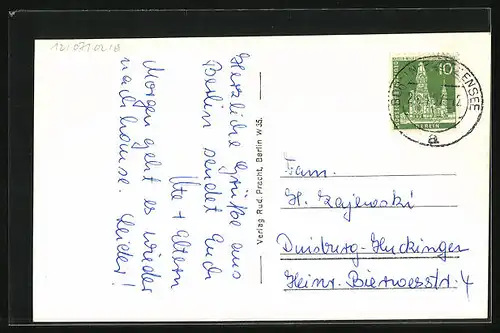 121071021a
Herzliche Grüße aus
Berlin sendet Euch
Ute + Eltern
Morgen geht es wieder
nach hause. Leider!
Verlag Rud. Pracht, Berlin W 35.
10
BERLIN
a
Fam.
H. Zajewski
Duisburg-Huckingen
Heinr. Bierwesstr. 4